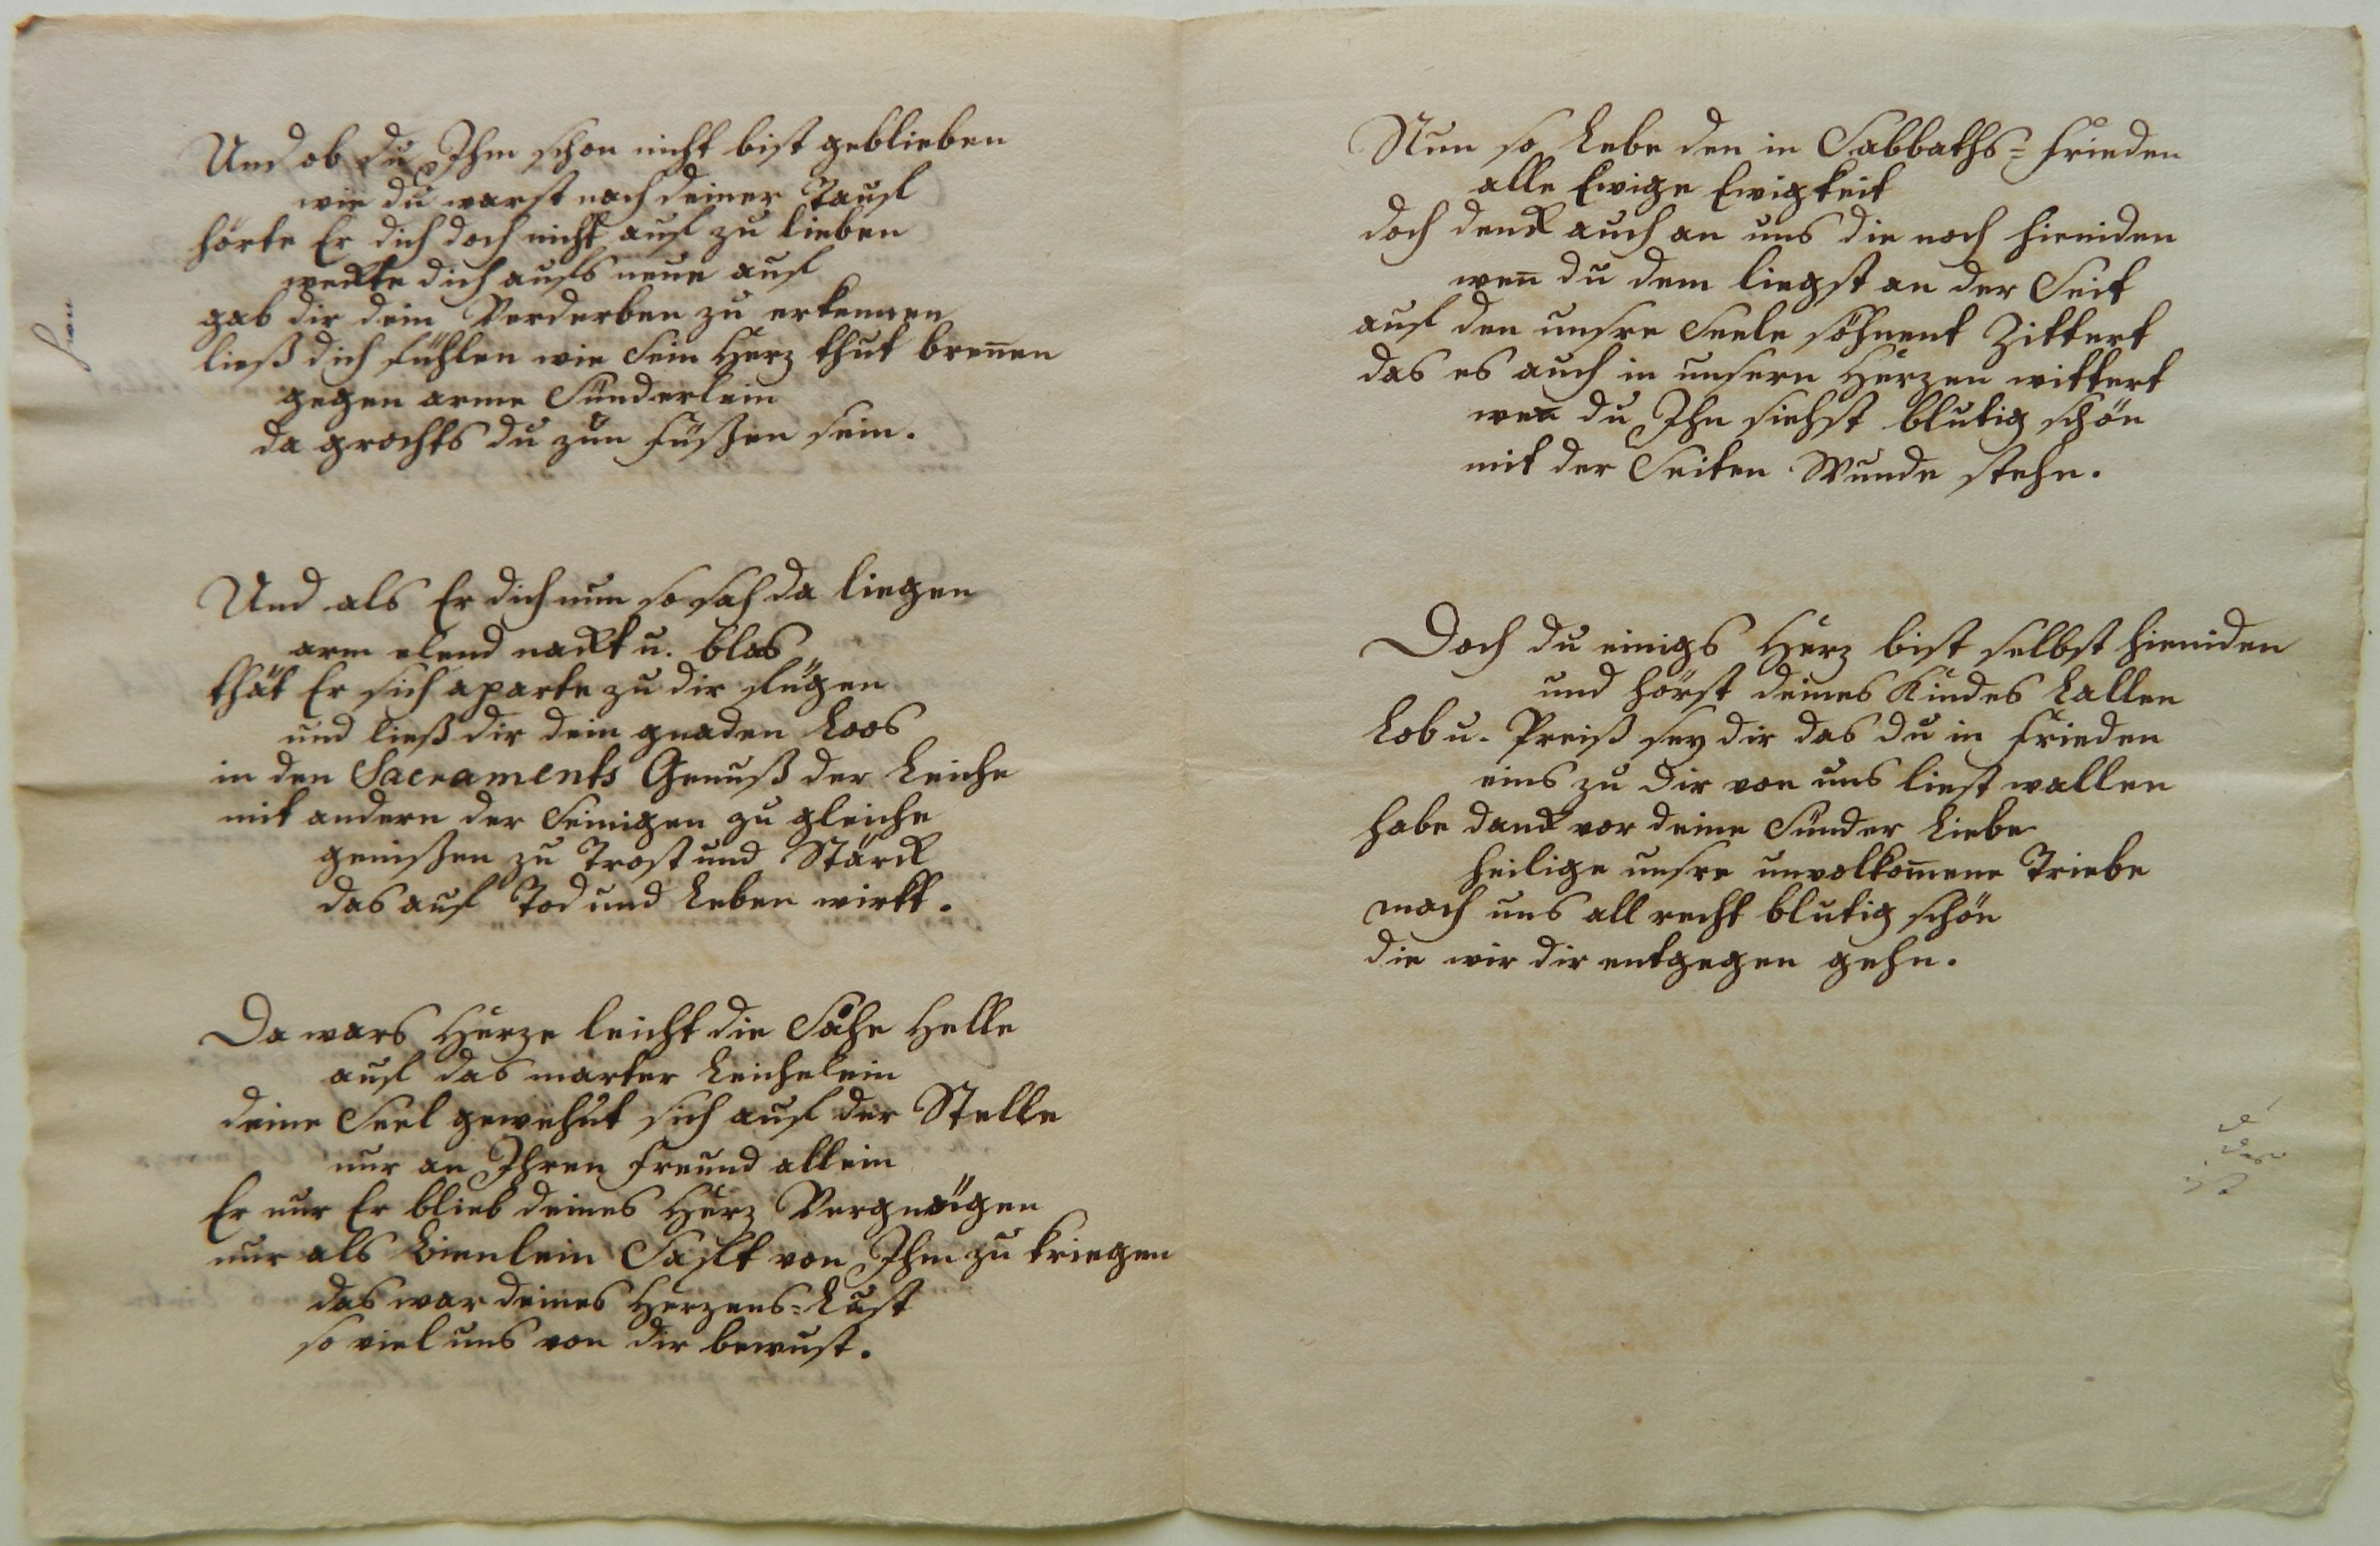 Und ob du Ihm schon nicht bist geblieben
wie du warst nach deiner Tauf
hörte Er dich doch nicht auf zu lieben
wekte dich aufs neue auf
gab dir dein Verderben zu erkennen
ließ dich fühlen wie Sein Herz thut breñen
gegen arme Sünderlein
da grochts du zun füßen sein.
Und als Er dich nun so sah da liegen
arm elend nakt u. blos
thät Er sich aparte zu dir fügen
und ließ dir dein gnaden Loos
in den Sacraments Genuß der Leiche
mit andern der Seinigen zu gleiche
genißen zu Trost und Stärck
das auf Tod und Leben wirkt.
Da wars Herze leicht die Sähe Helle
auf das marter Leichelein
deine Seel gewehnt sich auf der Stelle
nur an Ihren freund allein
Er nur Er blieb deines Herz Vergnügen
nur als Bienlein Safft von Ihm zu kriegen
das war deines Herzens=Lust
so viel uns von dir bewust.
Nun so Lebe den in Sabbaths=frieden
alle Ewige Ewigkeit
doch denck auch an uns die noch hieniden
weñ du dem liegst an der Seit
auf den unsre Seele söhnent Zittert
das es auch in unsern Herzen wittert
weñ du Ihn siehst blutig schön
mit der Seiten Wunde stehn.
Doch du einigs Herz bist selbst hieniden
und hörst deines Kindes Lallen
Lob u. Preiß sey dir das du in frieden
eins zu dir von uns liest wallen
habe danck vor deine Sünder Liebe
heilige unsre unvolkom̃ene Triebe
mach uns all recht blutig schön
die wir dir entgegen gehn.